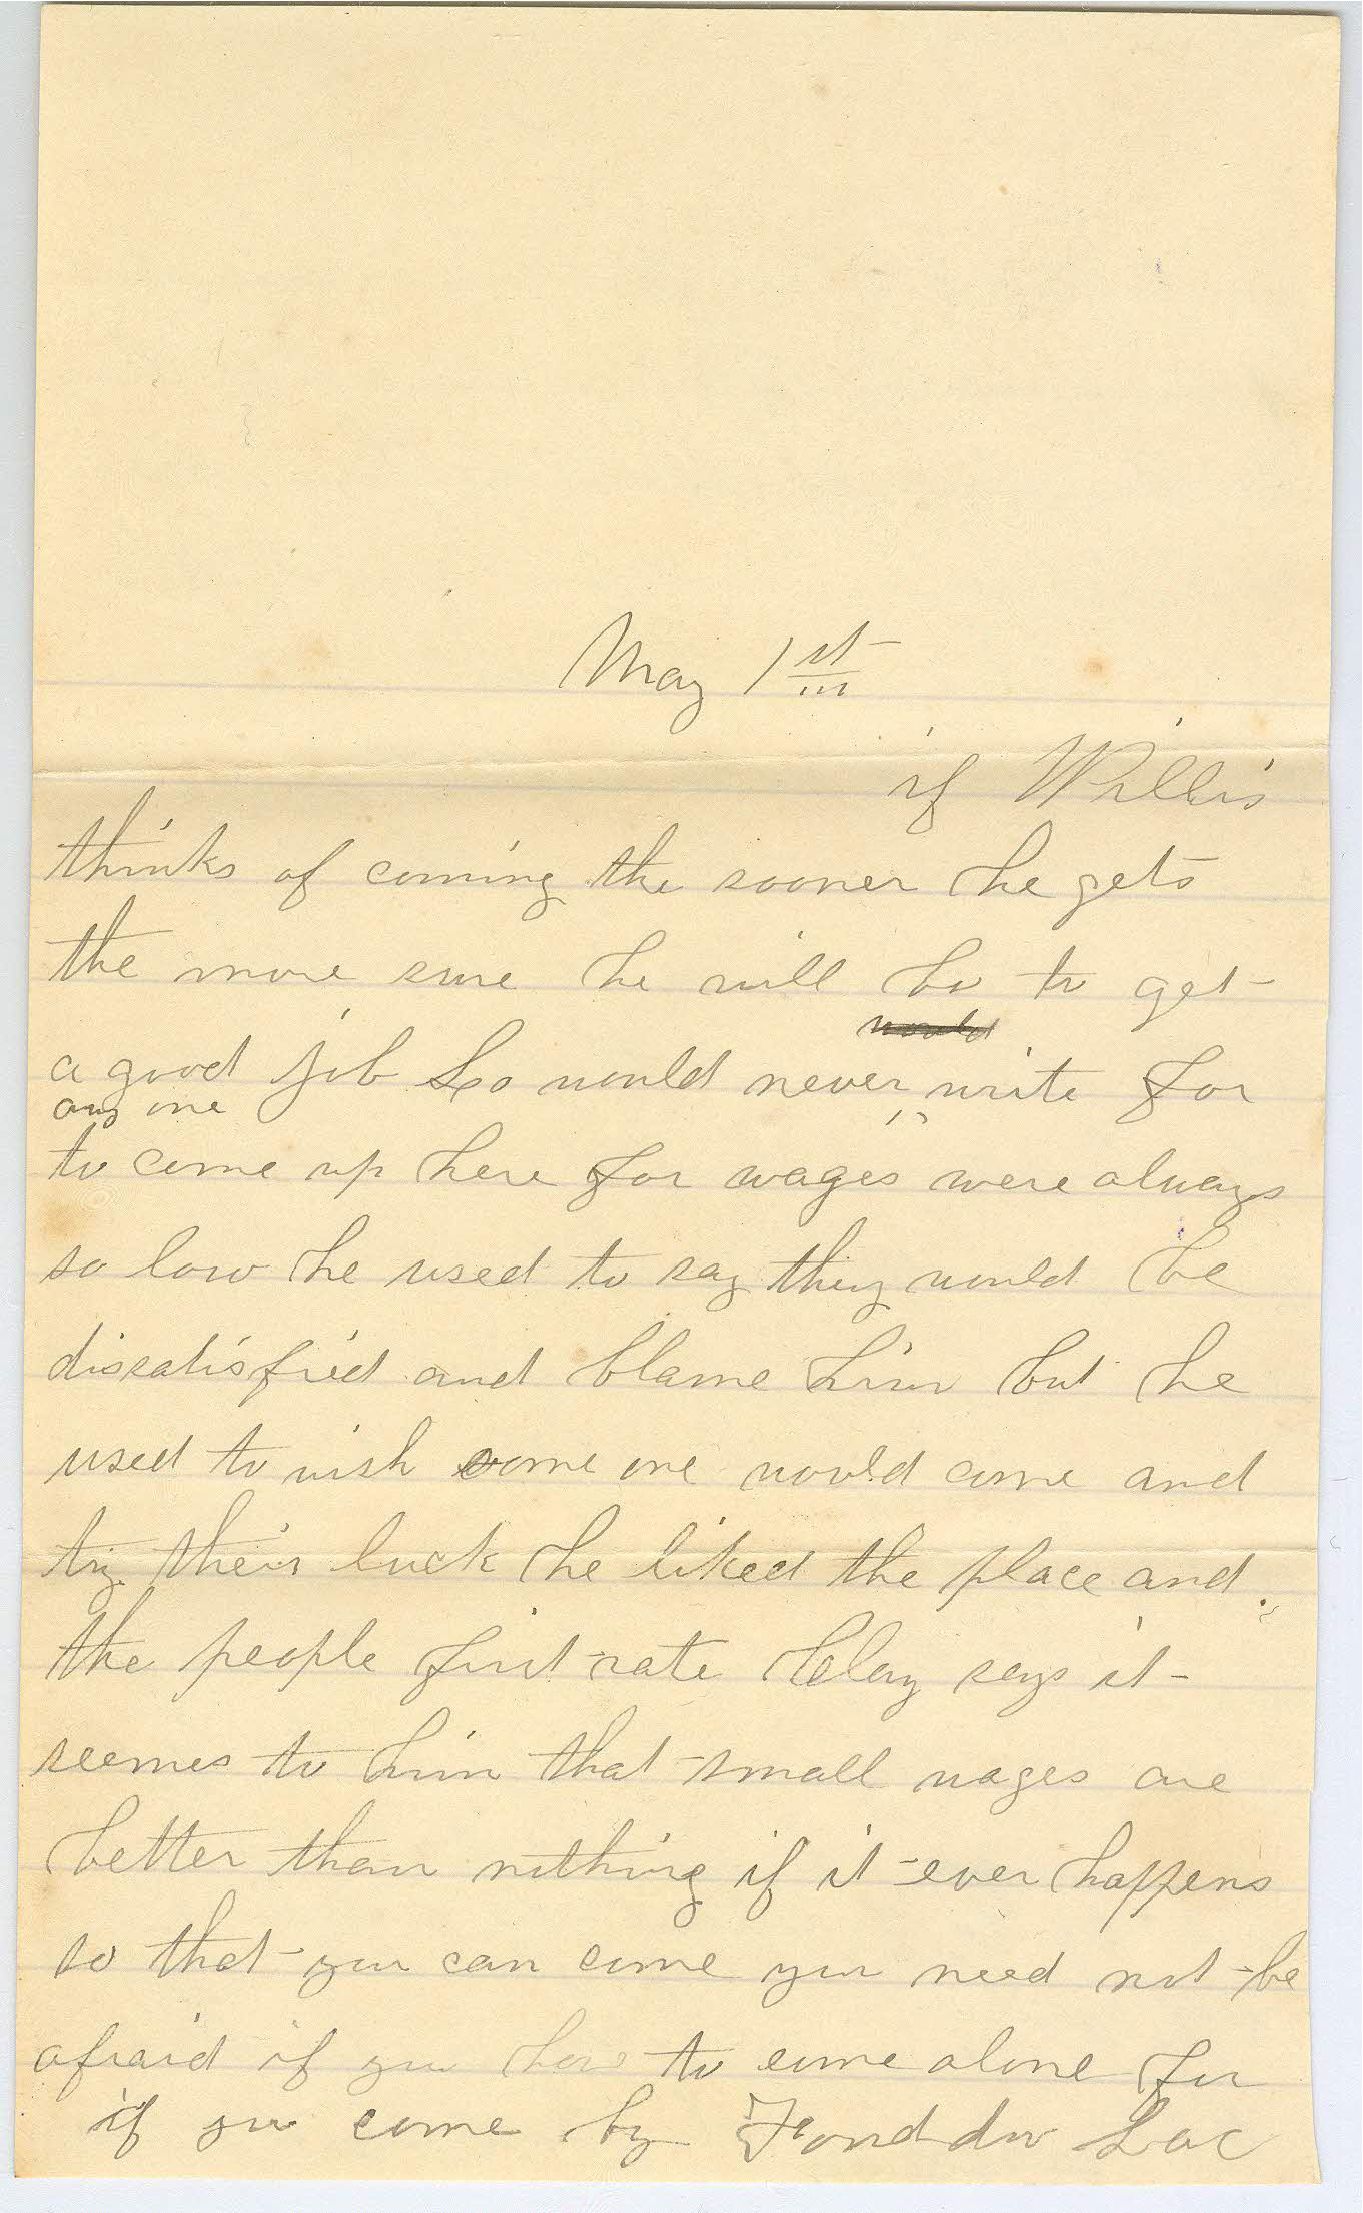 May 1st
if Willis
thinks of coming the sooner he gets
the more sure he will be to get
would
a good job Lo would never write for
any one
to come up here for wages were always
so low he used to say they would be
dissatisfied and blame him but he
used to wish some one would come and
try their luck he liked the place and
the people first rate Clay says it
seemes to him that small wages are
better than nothing if it ever happens
so that you can come you need not be
afraid if you have to come alone for
if you come by Fond du Lac